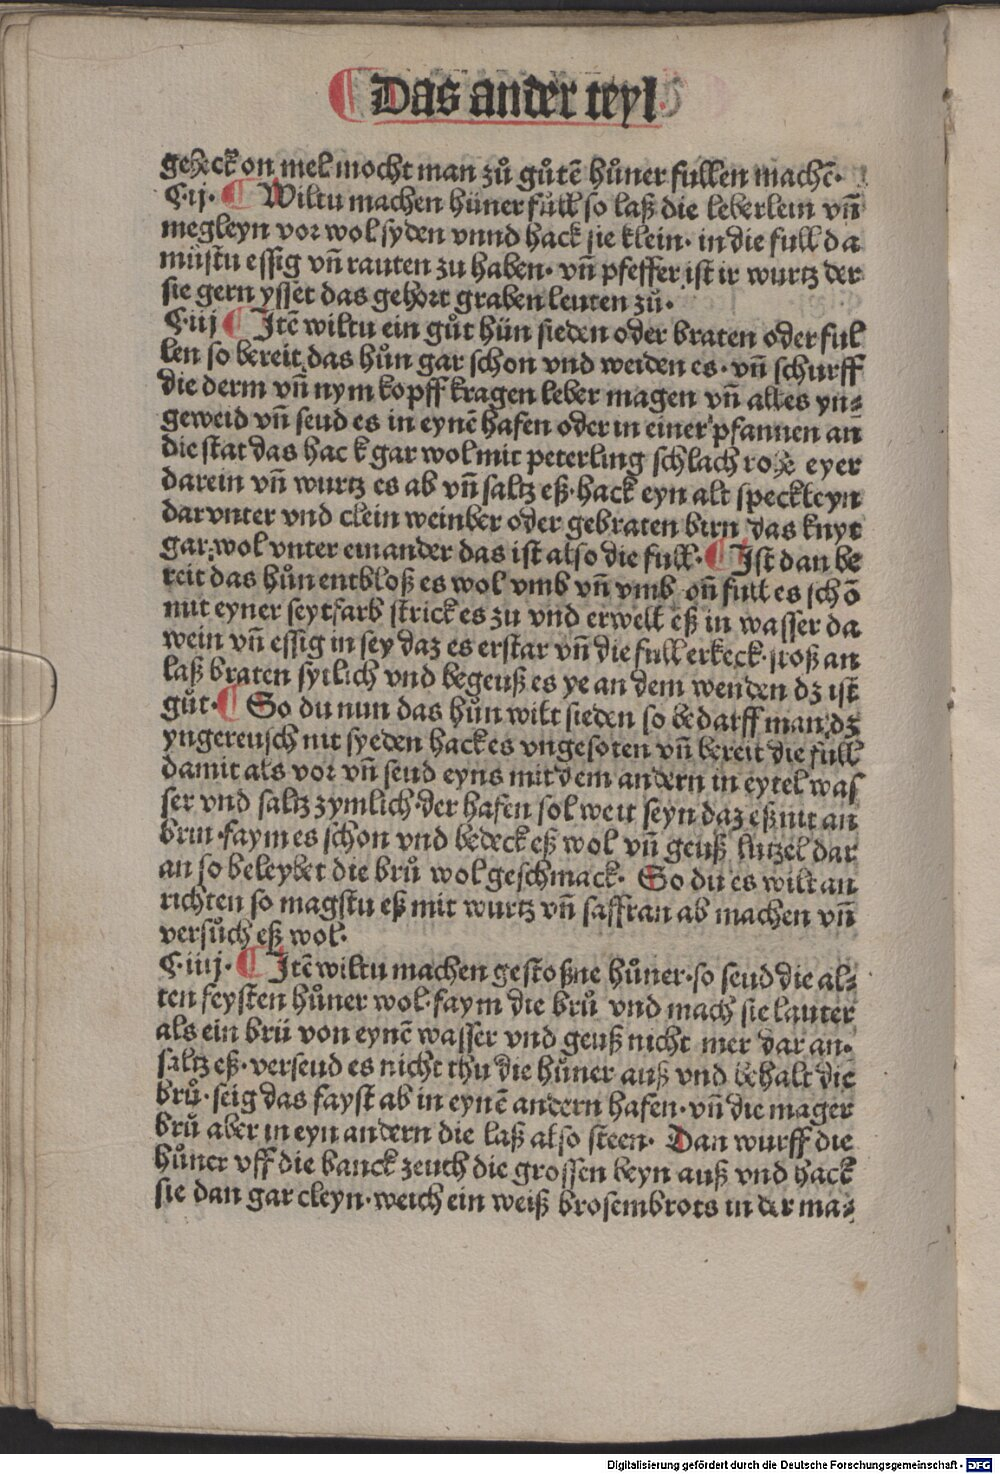 ¶ Das ander teyl
geheck on mel mocht man zů gůtē hůner fullen machē·
C·ij· ¶ Wiltu machen hüner füll so laß die leberlein vn̄
megleyn vor wol syden vnnd hack sie klein· in die full da
müstu essig vn̄ rauten zu haben· vn̄ pfeffer ist ir wurtz der
sie gern ysset das gehort graben leuten zů·
C·iij ¶ Itē wiltu ein gůt hün sieden oder braten oder ful
len so bereit das hůn gar schon vnd weiden es· vn̄ schurff
die derm vn̄ nym kopff kragen leber magen vn̄ alles yn⸗
geweid vn̄ seud es in eynē hafen oder in einer pfannen an
die stat das hack gar wol mit peterling schlach rohe eyer
darein vn̄ wurtz es ab vn̄ saltz eß·hack eyn alt speckleyn
darvnter vnd clein weinber oder gebraten birn das knyt
gar wol vnter einander das ist also die full· ¶ Ist dan be
reit das hůn entbloß es wol vmb vn̄ vmb on̄ full es schō
mit eyner seytfarb strick es zu vnd erwell eß in wasser da
wein vn̄ essig in sey daz es erstar vn̄ die full erkeck·stoß an
laß braten sytlich vnd begeuß es ye an dem wenden dz ist
gůt· ¶ So du nun das hůn wilt sieden so bedarff man dz
yngereusch nit syeden hack es vngesoten vn̄ bereit die full
damit als vor vn̄ seud eyns mit dem andern in eytel was
ser vnd saltz zymlich·der hafen sol weit seyn daz eß nit an
brin·faym es schon vnd bedeck eß wol vn̄ geuß lutzel dar
an so beleybet die brů wol geschmack· So du es wilt an
richten so magstu eß mit wurtz vn̄ saffran ab machen vn̄
versůch eß wol·
C·iiij· ¶ Itē wiltu machen gestoßne hůner·so seud die al⸗
ten feysten hůner wol·faym die brů vnd mach sie lauter
als ein brü von eynē wasser vnd geuß nicht mer dar an·
saltz eß·verseud es nicht thu die hůner auß vnd behalt die
brů·seig das fayst ab in eynē andern hafen·vn̄ die mager
brů aber in eyn andern die laß also steen· Dan wurff die
hůner vff die banck zeuch die grossen beyn auß vnd hack
sie dan gar cleyn·weich ein weiß brosembrots in der ma⸗
Digitalisierung gefördert durch die Deutsche Forschungsgemeinschaft - DFG